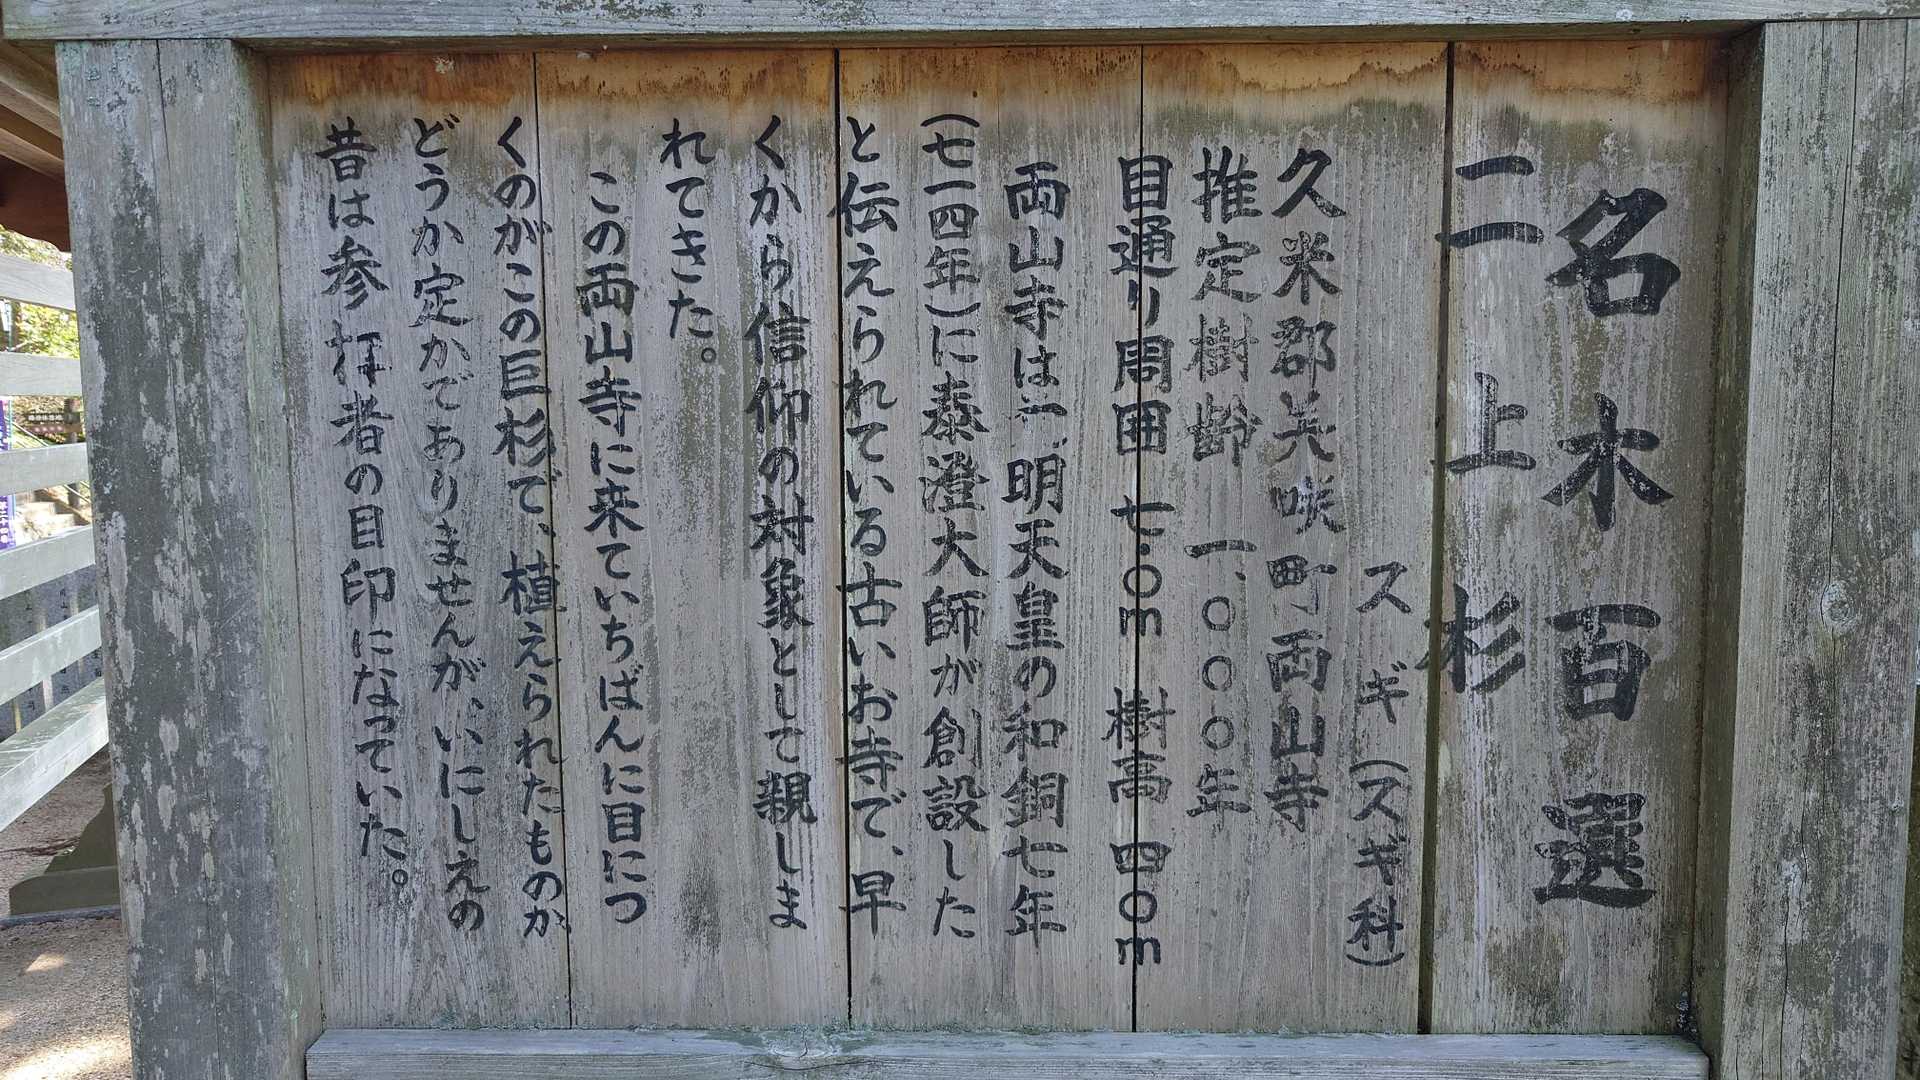 名木百選
二上杉
スギ(スギ科)
久米郡美咲町両山寺
推定樹齢 一、〇〇〇年
目通り周囲 七・〇m 樹高 四〇m
両山寺は、明天皇の和銅七年
(七一四年)に泰澄大師が創設した
と伝えられている古いお寺で、早
くから信仰の対象として親しま
れてきた。
この両山寺に来ていちばんに目につ
くのがこの巨杉で、植えられたものか
どうか定かでありませんが、いにしえの
昔は参拝者の目印になっていた。